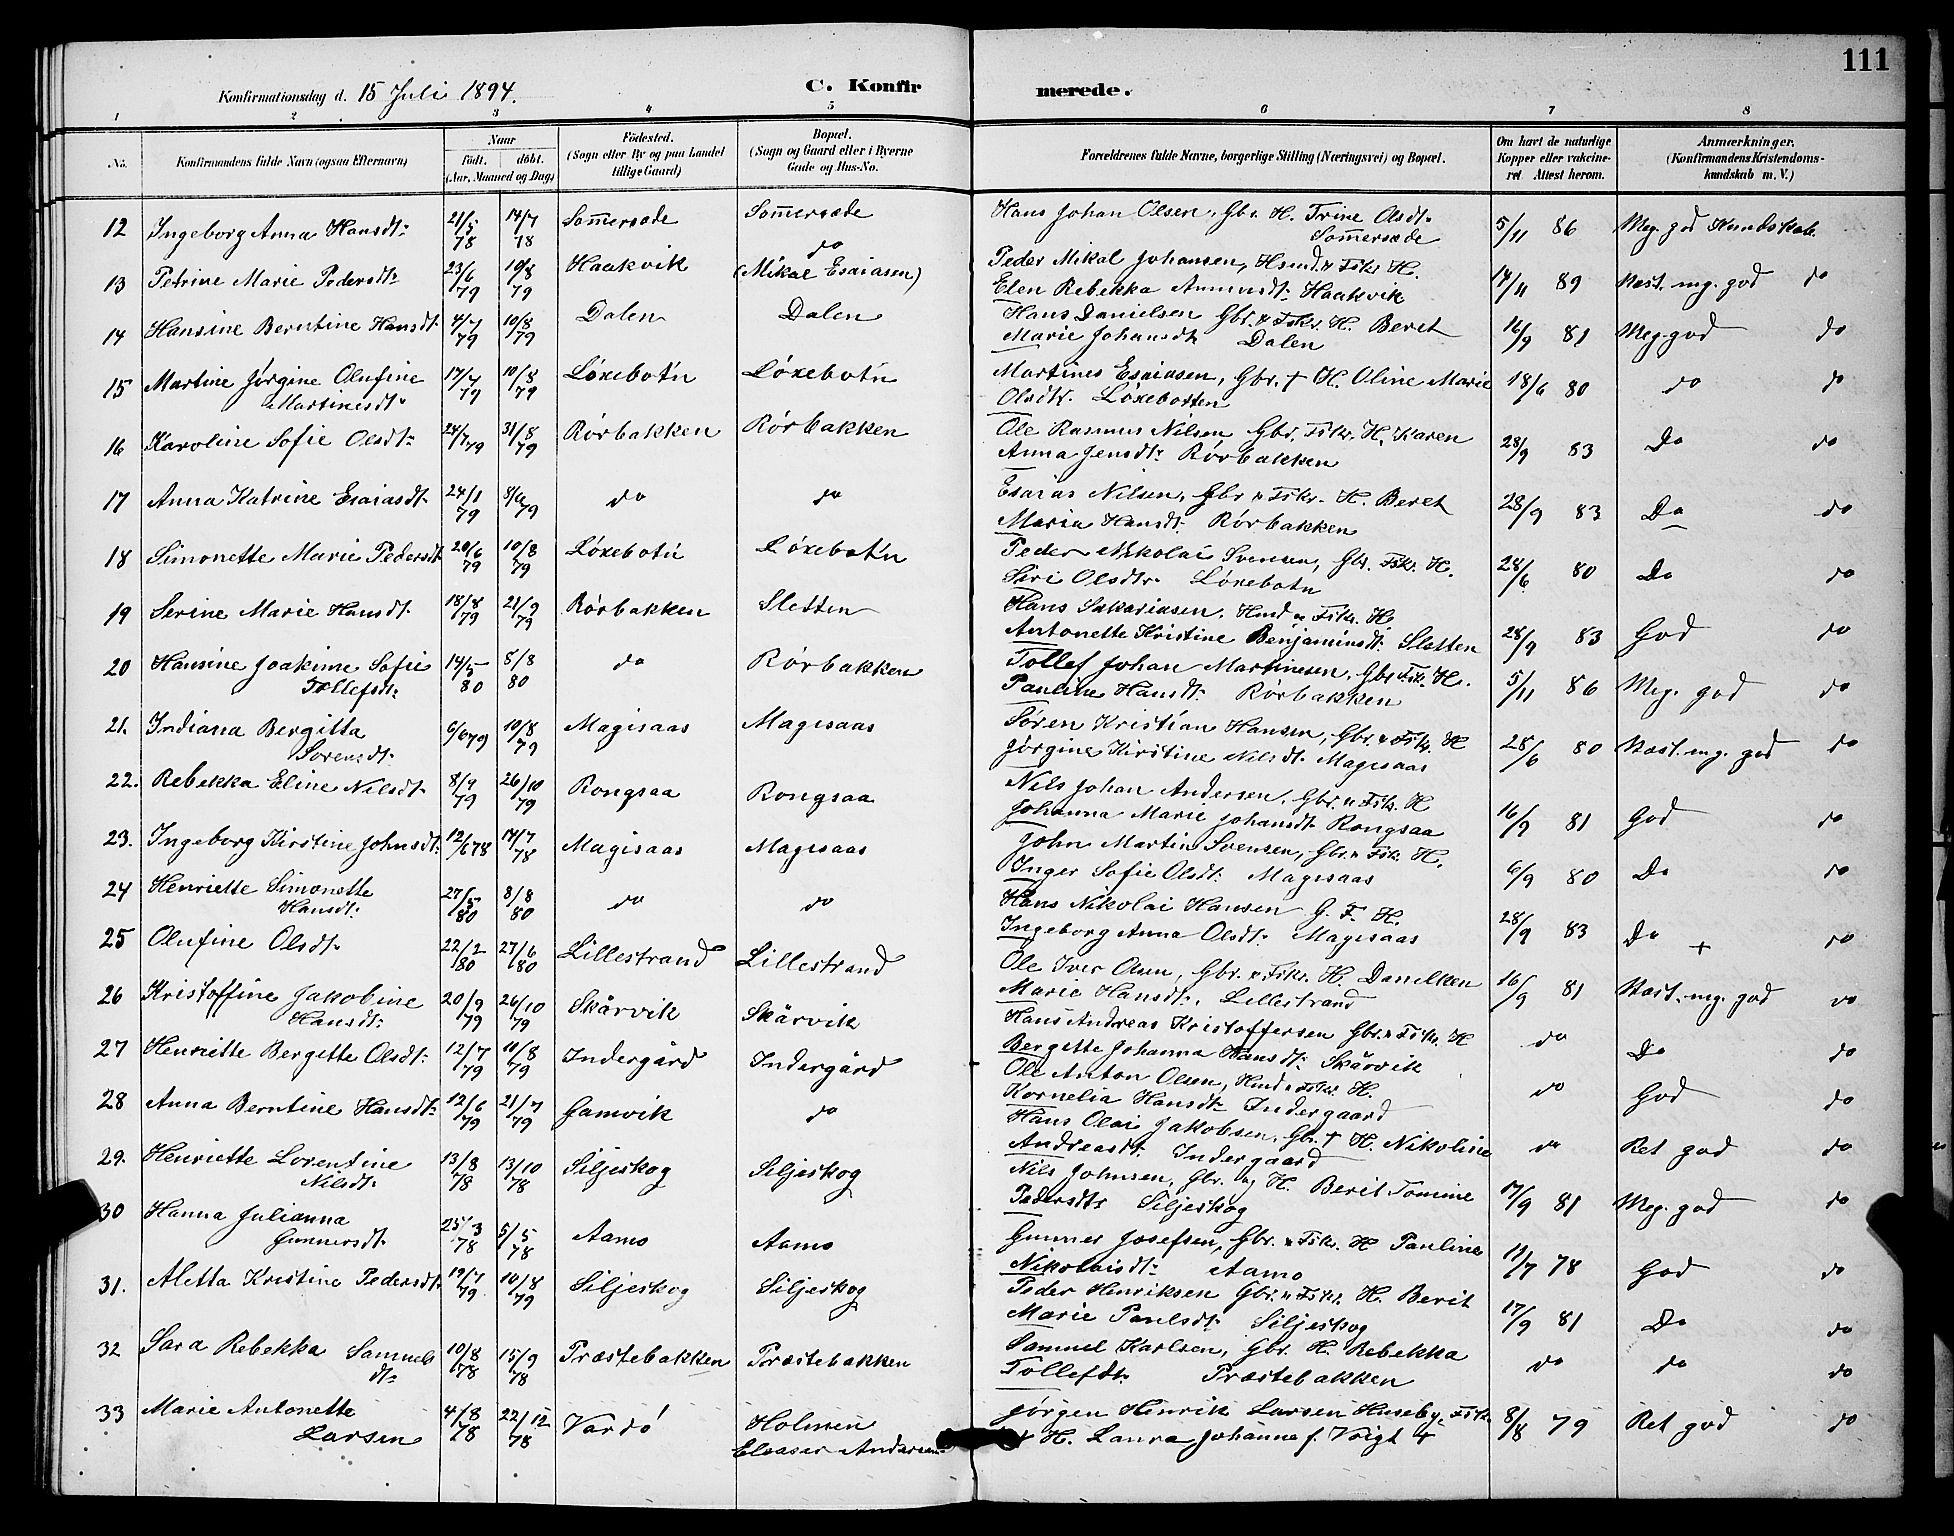 111
Konfirmationsdag d. 15 Juli 1894. C. Konfirmerede.
1 2 3 4 5 6 7 8
No. Konfirmandens fulde Navn (ogsaa Efternavn) Naar födt. döbt. (Aar, Maaned og Dag) Födested. (Sogn eller By og paa Landet tillige Gaard) Bopæl. (Sogn og Gaard eller i Byerne Gade og Hus-No. Forældrenes fulde Navne, borgerlige Stilling (Næringsvei) og Bopæl. Om havt de naturlige Kopper eller vakcineret. Attest herom. Anmærkninger. (Konfirmandens Kristendomskundskab m. V.)
12 Ingeborg Anna Hansdt: 21/5 78 14/7 78 Som̄ersæde Som̄ersæde Hans Johan Olsen, Gbr. H. Trine Olsdt: Som̄ersæde 5/11 86 Meg. god Kundskab.
13 Petrine Marie Pedersdt: 23/6 79 10/8 79 Haakvik do (Mikal Esaiasen) Peder Mikal Johansen, Hsmd. & Fskr H. Elen Rebekka Amundsdt: Haakvik 14/11 89 Næst. mg. god do
14 Hansine Berntine Hansdt: 4/7 79 10/8 79 Dalen Dalen Hans Danielsen Gbr. & Fskr. H. Beret Marie Johansdt: Dalen 16/9 81 Meg. god do
15 Martine Jørgine Olufine Martinesdt: 17/7 79 10/8 79 Løxebotn Løxebotn Martines Esaiasen, Gbr. + H. Oline Marie Olsdt. Løxebotten 18/6 80 do do
16 Karoline Sofie Olsdt: 24/7 79 31/8 79 Rørbakken Rørbakken Ole Rasmus Nilsen Gbr. Fskr. H. Karen Anna Jensdt: Rørbakken 28/9 83 Do do
17 Anna Katrine Esaiasdt: 24/1 79 8/6 79 do do Esaias Nilsen, Gbr & Fskr. H. Beret Maria Hansdt: Rørbakken 28/9 83 Do do
18 Simonette Marie Pedersdt 20/6 79 10/8 79 Løxebotn Løxebotn Peder Nikolai Svensen, Gbr. Fskr. H. Siri Olsdtr. Løxebotn 28/6 80 Do do
19 Serine Marie Hansdt: 18/8 79 21/9 79 Rørbakken Sletten Hans Sakariasen, Hmd & Fskr. H. Antonette Kristine Benjaminsdt: Sletten 28/9 83 God do
20 Hansine Joakime Sofie Tollefsdt: 14/5 80 8/8 80 do Rørbakken Tollef Johan Martinesen, Gbr & Fskr. H. Pauline Hansdt: Rørbakken 5/11 86 Meg. god do
21. Indiana Bergitta Sørensdt: 6/6 79 10/8 79 Magisaas Magisaas Søren Kristian Hansen, Gbr. & Fskr. H Jørgine Kirstine Nilsdt: Magisaas 28/6 80 Næst. mg. god do
22. Rebekka Eline Nilsdt: 8/9 79 26/10 79 Rongsaa Rongsaa Nils Johan Andersen, Gbr. & Fskr. H Johanna Marie Johansdt: Rongsaa 16/9 81 God do
23. Ingeborg Kirstine Johnsdt: 12/6 78 14/7 78 Magisaas Magisaas John Martin Svensen, Gbr. & Fskr. H. Inger Sofie Olsdt: Magisaas 6/9 80 Do do
24 Henriette Simonette Hansdt: 27/5 80 8/8 80 do do Hans Nikolai Hansen G. F. H. Ingeborg Anna Olsdt: Magisaas 28/9 83 Do + do
25 Olufine Olsdt: 22/2 80 27/6 80 Lillestrand Lillestrand Ole Iver Olsen, Gbr. & Fskr. H. Danelken Marie Hansdt: Lillestrand 16/9 81 Næst. mg. god do
26 Kristoffine Jakobine Hansdt: 20/9 79 26/10 79 Skårvik Skårvik Hans Andreas Kristoffersen Gbr. & Fskr. H Bergitte Johanna Hansdt: Skårvik do Do do
27 Henriette Bergette Olsdt: 12/7 79 10/8 79 Indergård Indergård Ole Anton Olsen, Hmd & Fskr. H. Kornelia Hansdt: Indergaard do God do
28 Anna Berntine Hansdt: 12/6 79 21/7 79 Gamvik do Hans Olai Jakobsen, Gbr. + H. Nikoline Andreasdt: Indergaard do Ret god do
29. Henriette Lorentine Nilsdt: 13/8 78 13/10 78 Siljeskog Siljeskog Nils Johnsen, Gbr. og H. Berit Tomine Pedersdt: Siljeskog 17/9 81 Meg. god do
30 Hanna Julianna Gunnersdt: 25/3 78 5/5 78 Aamo Aamo Gunner Josefsen, Gbr. & Fskr. H Pauline Nikolaisdt: Aamo 11/7 78 God do
31. Aletta Kristine Pedersdt: 19/7 79 10/8 79 Siljeskog Siljeskog Peder Henriksen Gbr. & Fskr. H. Berit Marie Paulsdt: Siljeskog 17/9 81 Do do
32 Sara Rebekka Samuelsdt: 10/8 78 15/9 78 Præstebakken Præstebakken Samuel Karlsen, Gbr. H. Rebekka Tollefdt: Præstebakken do do do
33 Marie Antonette Larsen 4/8 78 22/12 78 Vardø Holmen Eleaser Andersen Jørgen Henrik Larsen Huseby, Fskr. + H. Laura Johanne f. Voigt + 8/8 79 Ret god do